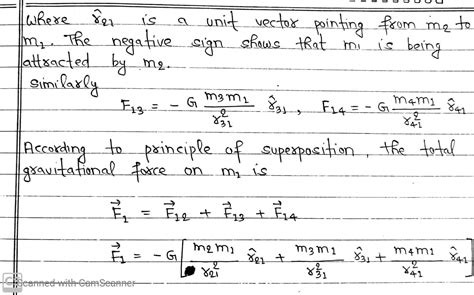 where r̂₂₁ is a unit vector pointing from m₂ to
m₁. The negative sign shows that m₁ is being
attracted by m₂.
Similarly
F₁₃ = - G m₃m₁/r₃₁² r̂₃₁ , F₁₄ = - G m₄m₁/r₄₁² r̂₄₁
According to principle of superposition, the total
gravitational force on m₁ is
F⃗₁ = F⃗₁₂ + F⃗₁₃ + F⃗₁₄
F⃗₁ = - G [ m₂m₁/r₂₁² r̂₂₁ + m₃m₁/r₃₁² r̂₃₁ + m₄m₁/r₄₁² r̂₄₁ ]
CS Scanned with CamScanner